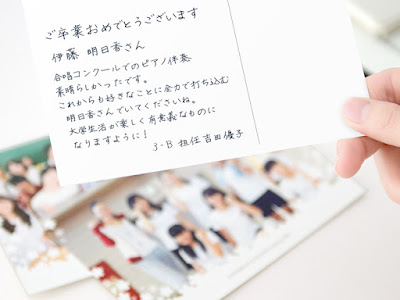 ご卒業おめでとうございます
伊藤 明日香さん
合唱コンクールでのピアノ伴奏
素晴らしかったです。
これからも好きなことに全力で打ち込む
明日香さんでいてくださいね。
大学生活が楽しく有意義なものに
なりますように!
3-B 担任 吉田優子